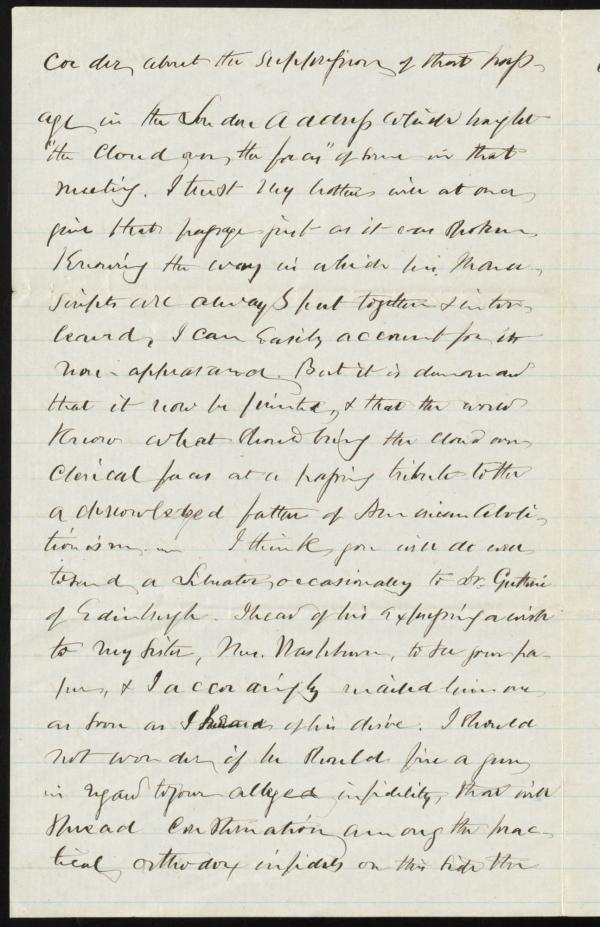 about the suppression of that pass-
age in the London Address which brought
"the cloud over the faces" of some in that
meeting. I trust my brother will at once
give that passage just as it was spoken
Knowing the way in which his Manu-
scripts are always put together & inter-
leaved, I can easily account for its
non-appearance. But it is demanded
that it now be printed, & that the world
know what should bring the cloud over
clerical faces at a passing tribute to the
acknowledged father of American Aboli-
tionism. — I think you will do well
to send a Liberator occasionally to Dr. Guthrie
of Edinburgh. I heard of his expressing a wish
to my sister, Mrs. Washburn, to see your pa-
per, & I accordingly mailed him one
as soon as I heard of his desire. I should
not wonder if he should fire a gun
in regard to your alleged infidelity, that will
spread consternation among the prac-
tical orthodox infidels on this side the